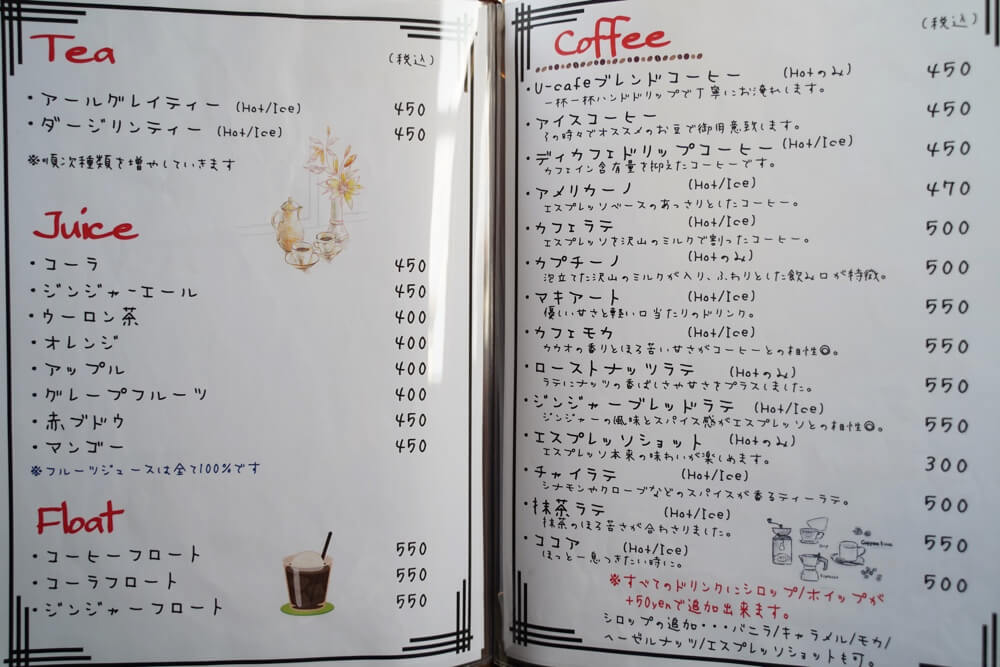 Tea
(税込)
・アールグレイティー (Hot/Ice) 450
・ダージリンティー (Hot/Ice) 450
※順次種類を増やしていきます
Juice
・コーラ 450
・ジンジャーエール 450
・ウーロン茶 400
・オレンジ 400
・アップル 400
・グレープフルーツ 400
・赤ブドウ 450
・マンゴー 450
※フルーツジュースは全て100%です
Float
・コーヒーフロート 550
・コーラフロート 550
・ジンジャーフロート 550
Coffee
(税込)
・U-cafeブレンドコーヒー (Hotのみ) 450
一杯一杯ハンドドリップで丁寧にお淹れします。
・アイスコーヒー 450
その時々でオススメのお豆で御用意致します。
・ディカフェドリップコーヒー (Hot/Ice) 450
カフェイン含有量を抑えたコーヒーです。
・アメリカーノ (Hot/Ice) 470
エスプレッソベースのあっさりとしたコーヒー。
・カフェラテ (Hot/Ice) 500
エスプレッソを沢山のミルクで割ったコーヒー。
・カプチーノ (Hotのみ) 500
泡立てた沢山のミルクが入り、ふわりとした飲み口が特徴。
・マキアート (Hot/Ice) 550
優しい甘さと軽い口当たりのドリンク。
・カフェモカ (Hot/Ice) 550
カカオの香りとほろ苦い甘さがコーヒーとの相性◎。
・ローストナッツラテ (Hotのみ) 550
ラテにナッツの香ばしさや甘さをプラスしました。
・ジンジャーブレッドラテ (Hot/Ice) 550
ジンジャーの風味とスパイス感がエスプレッソとの相性◎。
・エスプレッソショット (Hotのみ) 300
エスプレッソ本来の味わいが楽しめます。
・チャイラテ (Hot/Ice) 500
シナモンやクローブなどのスパイスが香るティーラテ。
・抹茶ラテ (Hot/Ice) 550
抹茶のほろ苦さが合わさりました。
・ココア (Hot/Ice) 500
ほっと一息つきたい時に。
※すべてのドリンクにシロップ/ホイップが
+50yenで追加出来ます。
シロップの追加・・・バニラ/キャラメル/モカ/
ヘーゼルナッツ/エスプレッソショットも可。